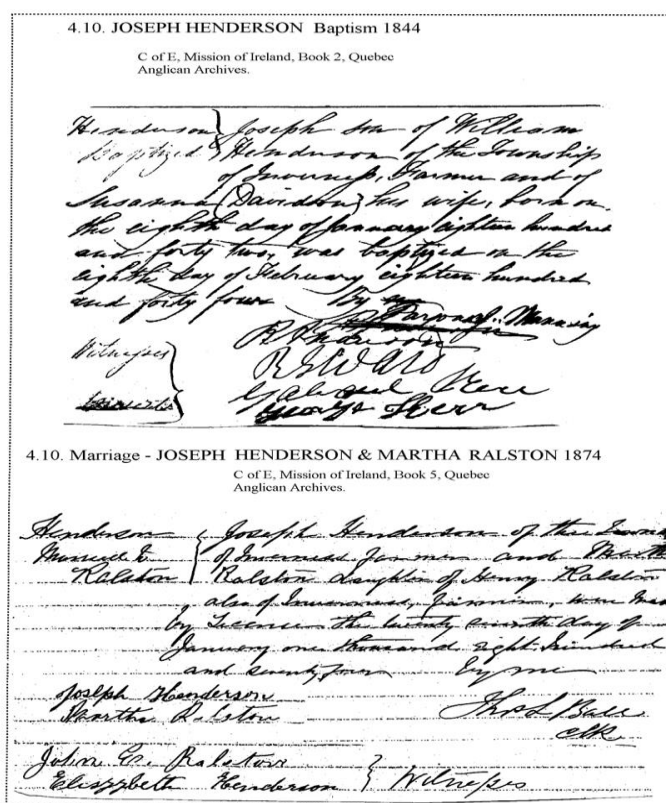 4.10. JOSEPH HENDERSON Baptism 1844
C of E, Mission of Ireland, Book 2, Quebec
Anglican Archives.
Henderson Joseph son of William
Baptized Henderson of the Township
of Inverness, Farmer and of
Susanna (Davidson) his wife, born on
the eighth day of January eighteen hundred
and forty two, was baptized on the
eighth day of February eighteen hundred
and forty four By me
R Anderson
R G Ward
Gabriel Kerr
George Kerr
Witnesses
4.10. Marriage - JOSEPH HENDERSON & MARTHA RALSTON 1874
C of E, Mission of Ireland, Book 5, Quebec
Anglican Archives.
Henderson Joseph Henderson of the
Married to of Inverness farmer and
Ralston Ralston daughter of Henry Ralston
also of Inverness, farmer, were
by Licence the twenty day of
January one thousand eight hundred
and seventy four by me
Joseph Henderson
Martha Ralston
Ball
Clk
John Ralston
Elizabeth Henderson Witnesses